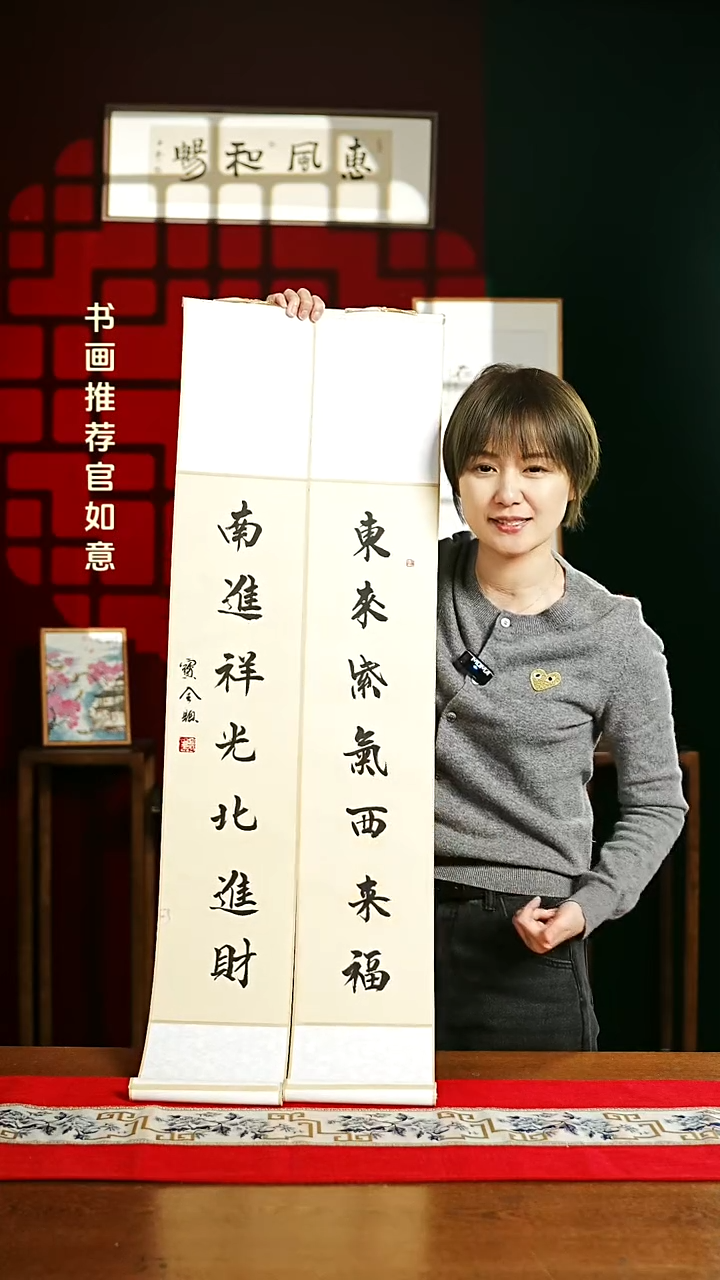 惠風和暢
书画推荐官如意
東來紫氣西来福
南進祥光北進財